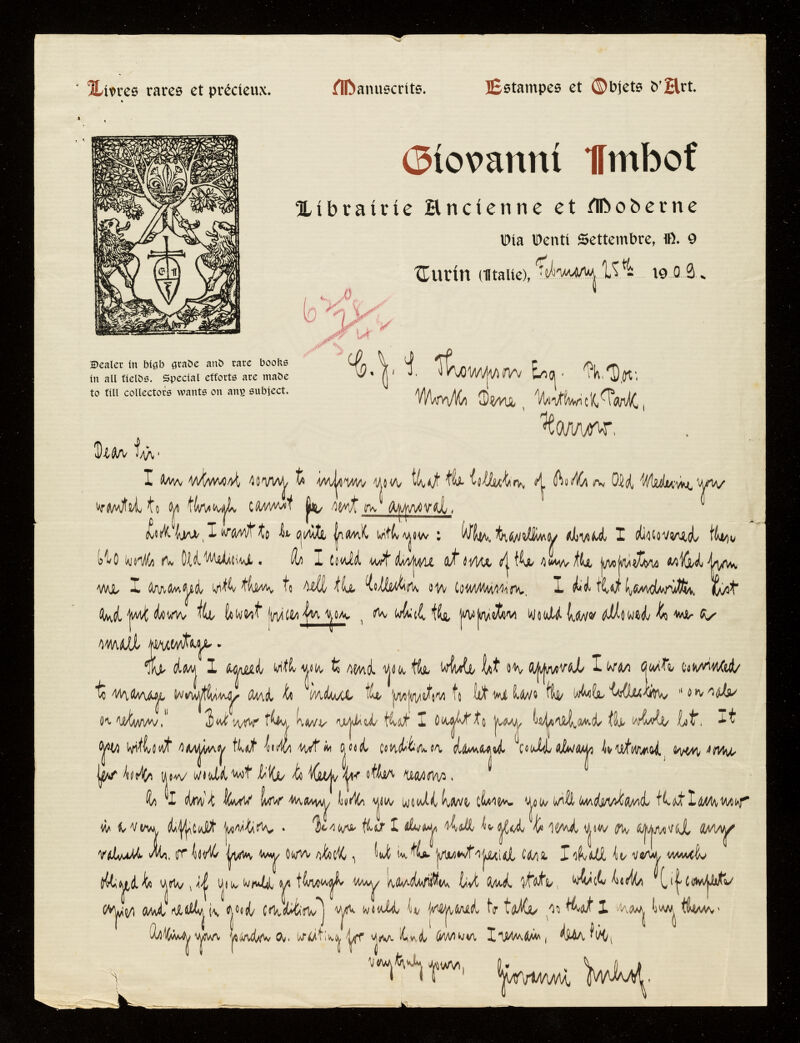 Livres rares et précieux. Manuscrits. Estampes et Objets d'Art.
Giovanni Imhof
Librairie Ancienne et Moderne
Via Venti Settembre, N. 9
Turin (Italie), February 25th 1909.
620
78
542
Dealer in high grade and rare books
in all fields. Special efforts are made
to fill collectors wants on any subject.
C. J. S. Thompson Esq. Ph. Doc:
Monks Dene, Northwick Park,
Harrow.
Dear Sir.
I am utmost sorry to inform you that the Collection of Books on Old Medecine you
wanted to go through cannot be sent on approval.
Look here, I want to be quite frank with you: When travelling abroad I discovered these
620 works on Old Medicine. As I could not dispose at once of the sum the proprietors asked from
me I arranged with them to sell the Collection on commission. I did that handwritten List
and put down the lowest prices for you, on which the proprietors would have allowed to me a
small percentage.
The day I agreed with you to send you the whole lot on approval I was quite convinced
to manage everything and to induce the proprietors to let me have the whole Collection "on sale
or return." But now they have replied that I ought to pay beforehand the whole lot. It
goes without saying that books not in good condition or damaged could always be returned, even some
few books you would not like to keep for other reasons.
As I don't know how many books you would have chosen you will understand that I am now
in a very difficult position. Be sure that I always shall be glad to send you on approval any
valuable Ms. or book from my own stock, but in the present special case I shall be very much
obliged to you, if you would go through my handwritten list and state, which books (if complete
copies and really in good condition) you would be prepared to take so that I may buy them.
Asking your pardon a. waiting for your kind answer I remain, dear Sir,
very truly yours,
Giovanni Imhof.